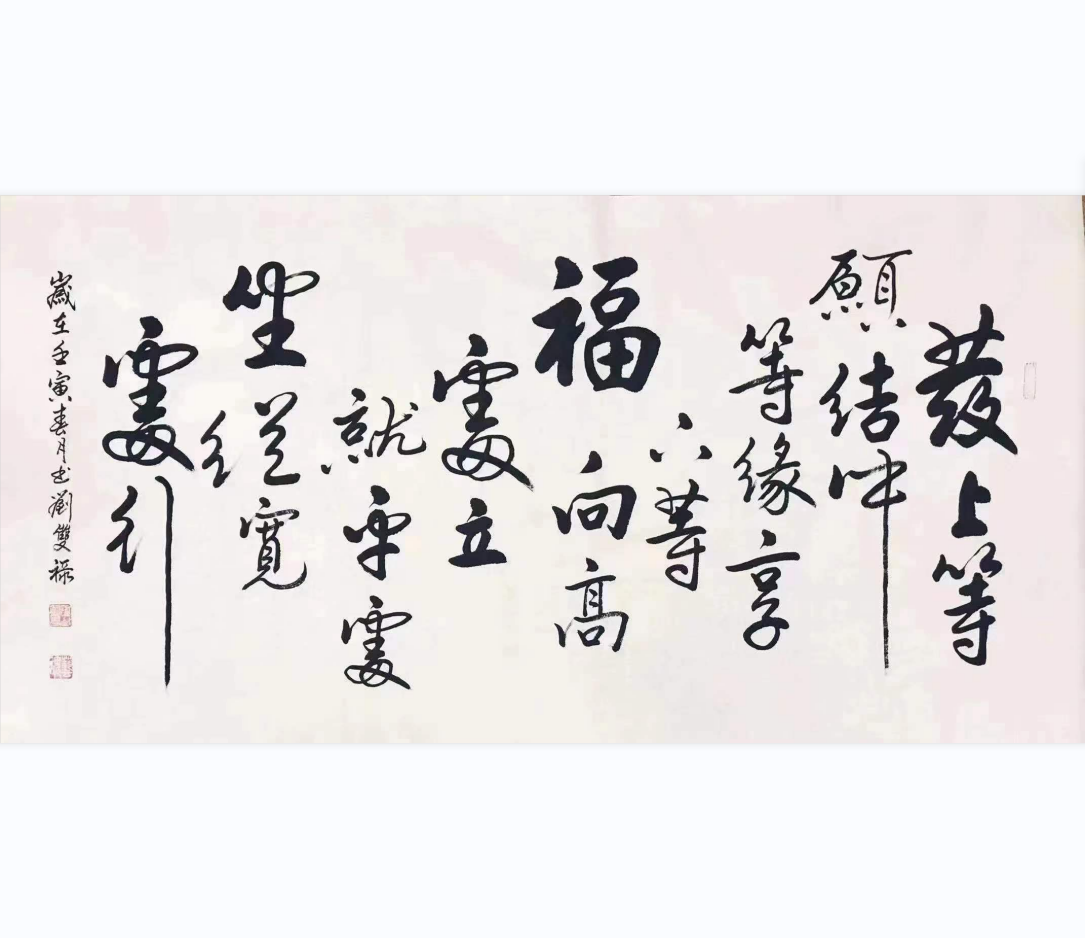 發上等
願結中
等緣享
下等
福向高
處立
就平處
坐從寬
處行
歲在壬寅春月书劉雙祿